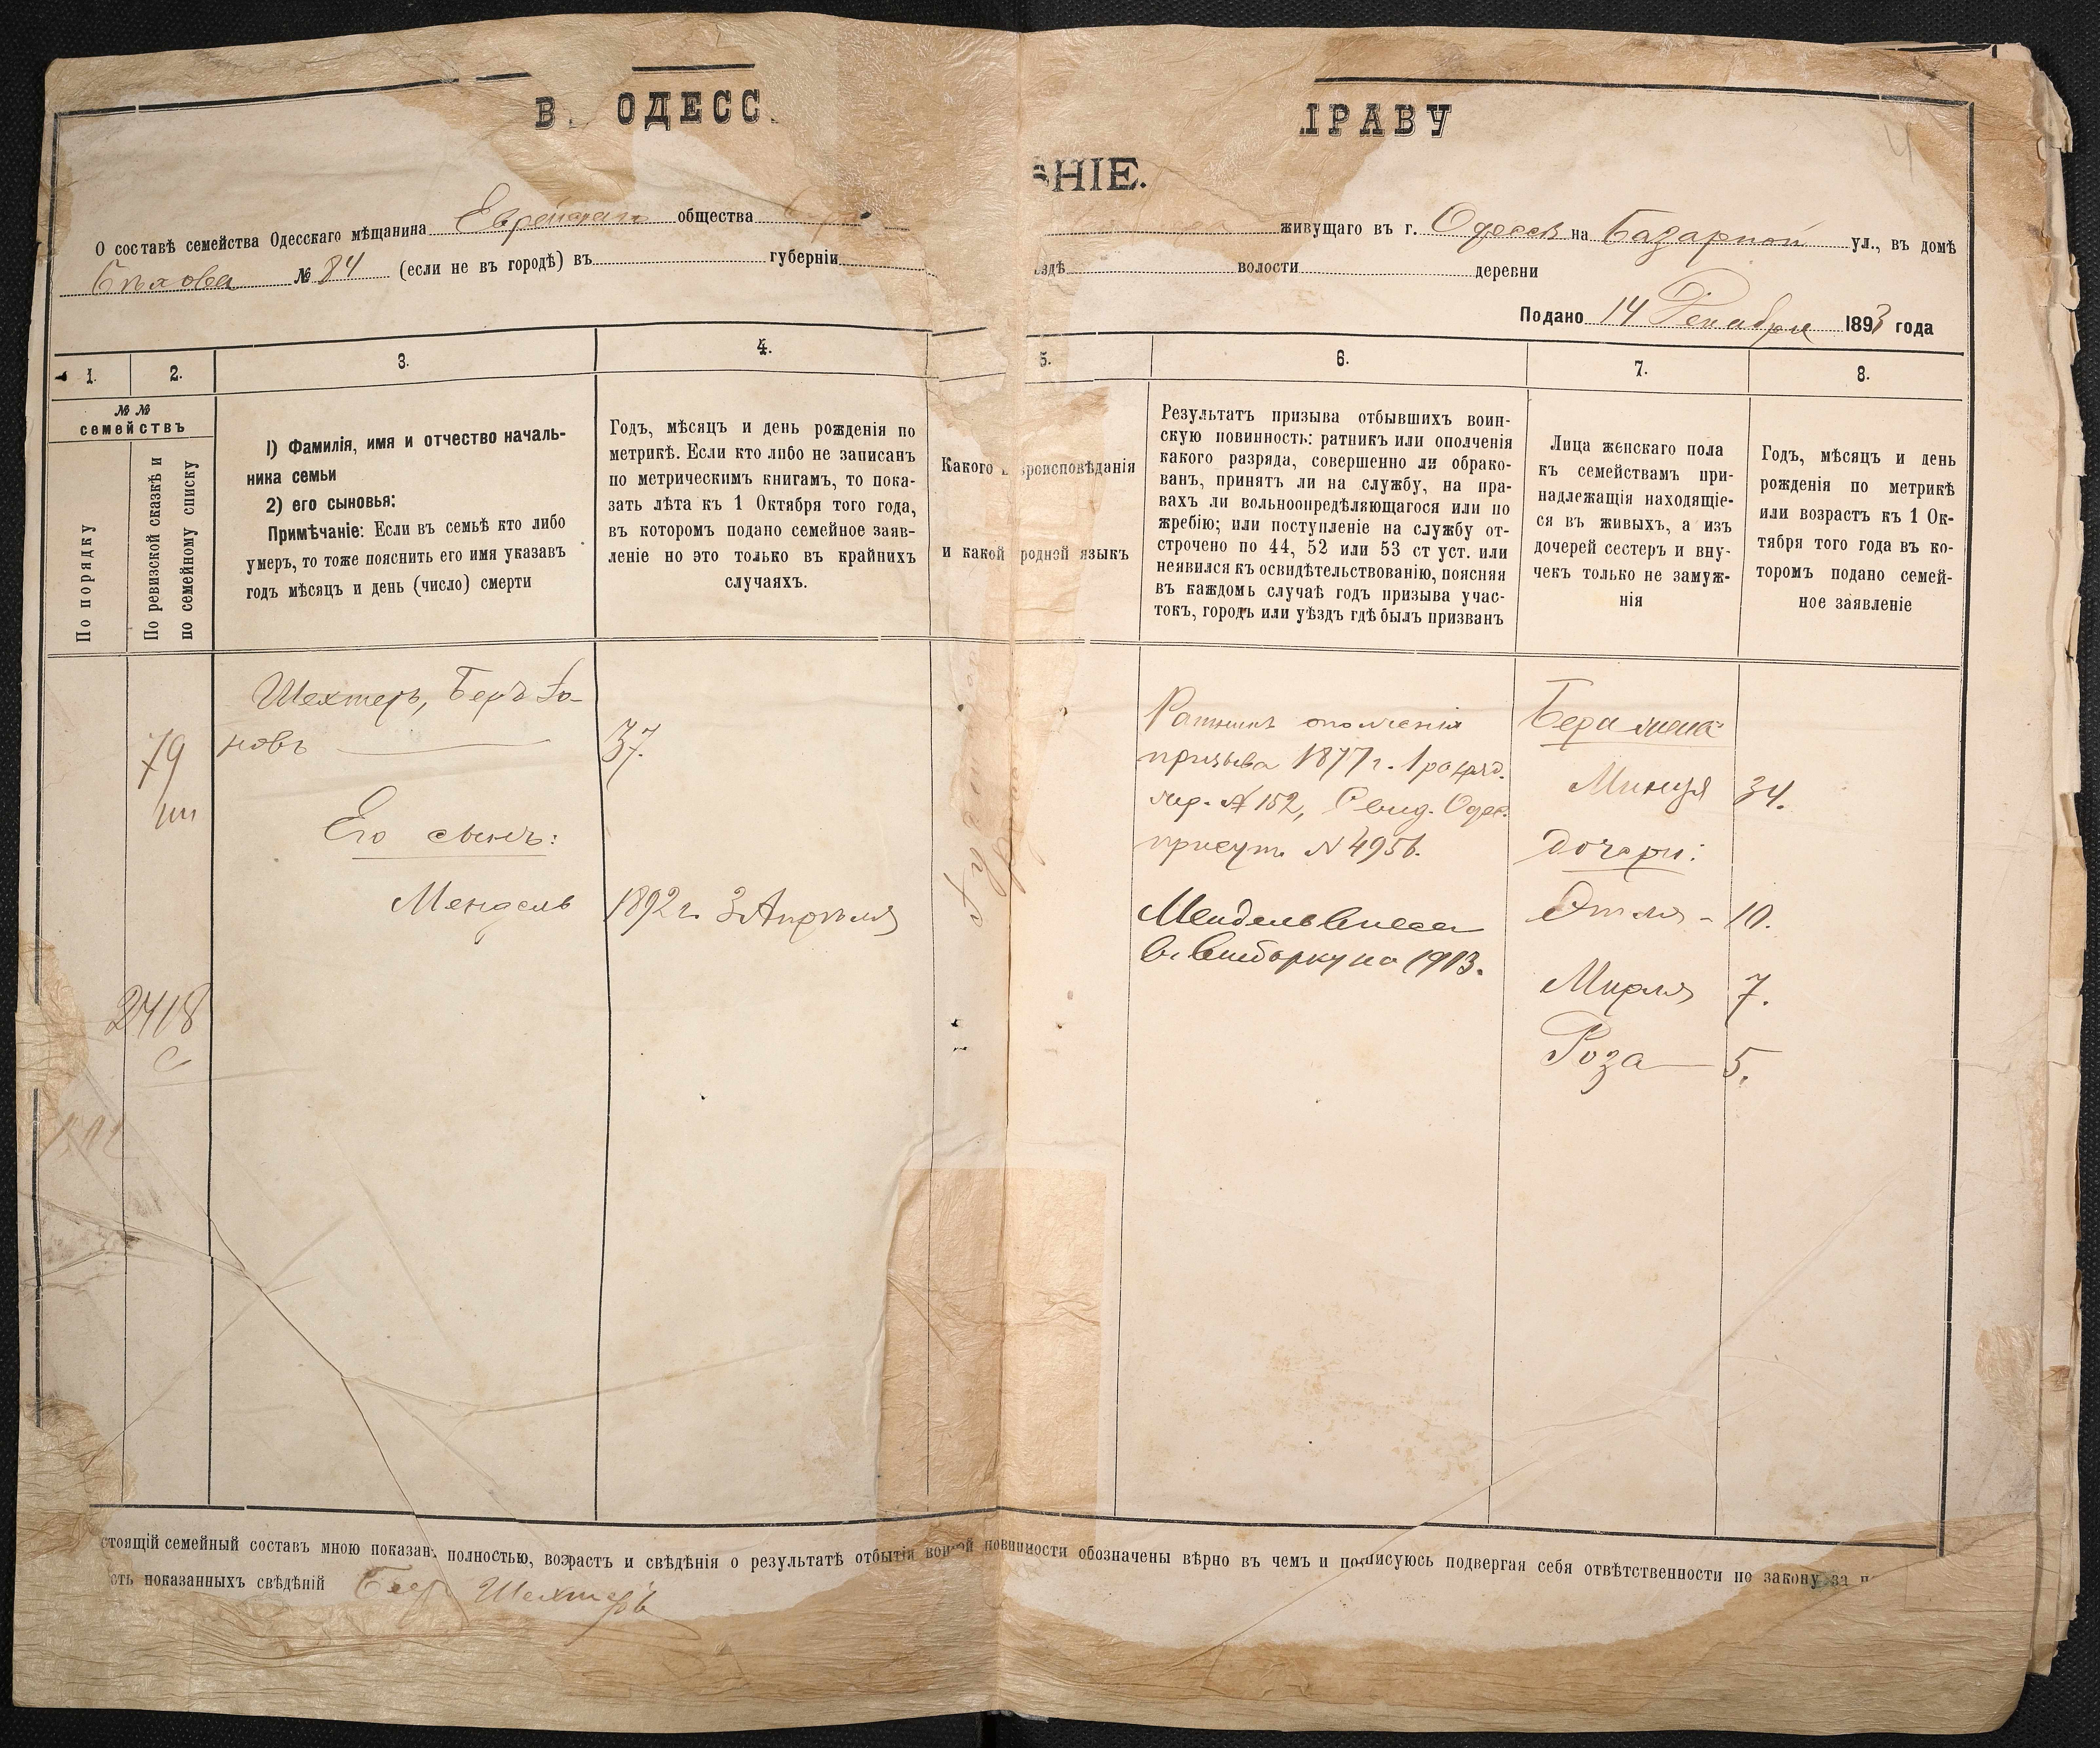 ОДЕСС
ПРАВУ
НІЕ.
О составѣ семейства Одесскаго мѣщанина Еврейскаго общества
живущаго въ г. Одессѣ на Базарной ул., въ домѣ
№ 84 (если не въ городѣ) въ губерніи
ѣздѣ волости деревни
Подано 14 Декабря 1893 года
1.
2.
3.
4.
5.
6.
7.
8.
№ №
семействъ
По порядку
По ревизской сказкѣ и
по семейному списку
1) Фамилія, имя и отчество началь-
ника семьи
2) его сыновья:
Примѣчаніе: Если въ семьѣ кто либо
умеръ, то тоже пояснить его имя указавъ
годъ мѣсяцъ и день (число) смерти
Годъ, мѣсяцъ и день рожденія по
метрикѣ. Если кто либо не записанъ
по метрическимъ книгамъ, то пока-
зать лѣта къ 1 Октября того года,
въ которомъ подано семейное заяв-
леніе но это только въ крайнихъ
случаяхъ.
Какого вѣроисповѣданія
и какой родной языкъ
Результатъ призыва отбывшихъ воин-
скую повинность: ратникъ или ополченія
какого разряда, совершенно ли обрако-
ванъ, принятъ ли на службу, на пра-
вахъ ли вольноопредѣляющагося или по
жребію; или поступленіе на службу от-
строчено по 44, 52 или 53 ст уст. или
неявился къ освидѣтельствованію, поясняя
въ каждомъ случаѣ годъ призыва учас-
токъ, городъ или уѣздъ гдѣ былъ призванъ
Лица женскаго пола
къ семействамъ при-
надлежащія находящіе-
ся въ живыхъ, а изъ
дочерей сестеръ и вну-
чекъ только не замуж-
нія
Годъ, мѣсяцъ и день
рожденія по метрикѣ
или возрастъ къ 1 Ок-
тября того года въ ко-
торомъ подано семей-
ное заявленіе
79
Шехтеръ, Беръ Іо-
новъ
37.
Его сынъ:
Мендель
1892 г. 3 Апрѣля
2418
с
Ратникъ ополченія
призыва 1877 г. 1 разряд.
жер. № 152, Свид. Одес.
присут. № 4956.
Мендель внесен
въ выборку на 1913.
Бера жена
Минця 34.
Дочери:
Этля - 10.
Мирля 7.
Роза 5.
стоящій семейный составъ мною показанъ полностью, возрастъ и свѣдѣнія о результатѣ отбытія воинской повинности обозначены вѣрно въ чемъ и подписуюсь подвергая себя отвѣтственности по закону за
сть показанныхъ свѣдѣній Беръ Шехтеръ